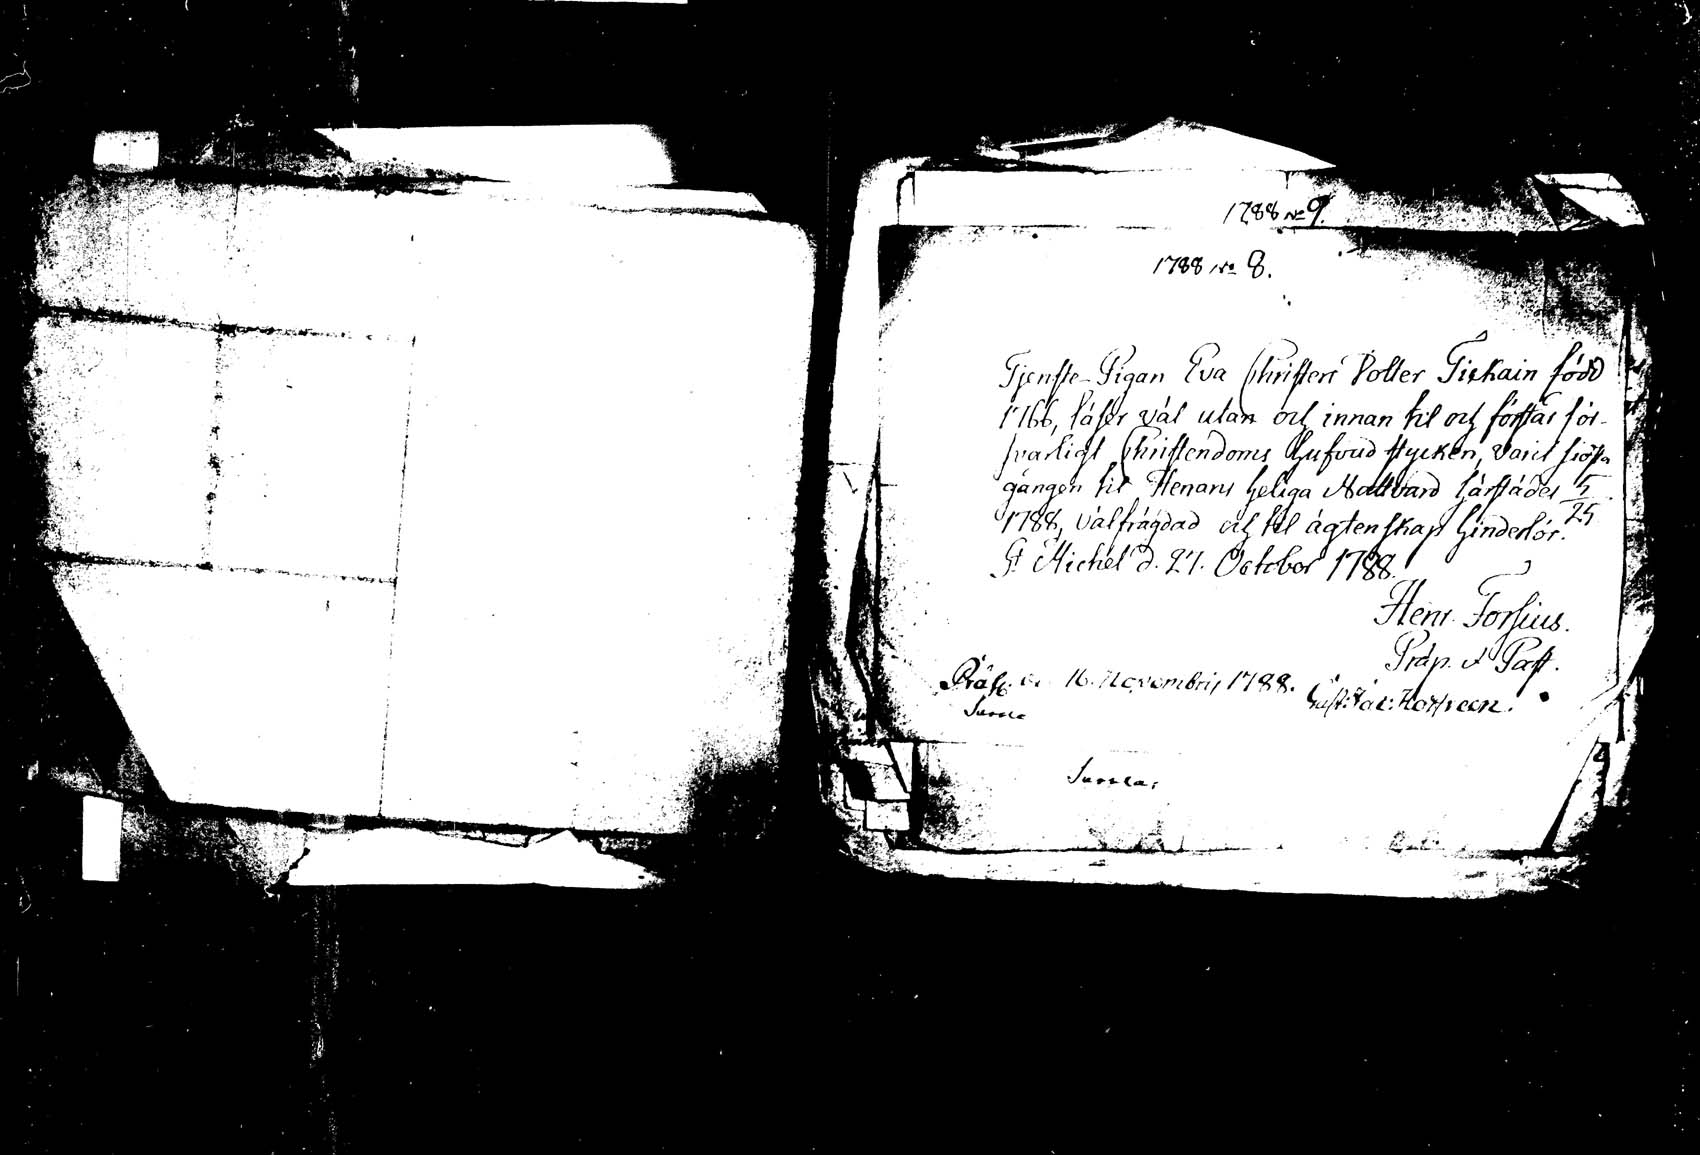 1788 No 9.
1788 No 8.
Tjenste-Pigan Eva Christers Dotter Tiskain född
1766, läser väl utan och innan til och förstår för-
svarligt Christendoms hufvud stycken, varit sidsta
gången til Herrans heliga Nattvard härstädes 5/25
1788, välfrägdad och til ägtenskap hinderlös.
St Michel d. 27. October 1788.
Henr. Forsius.
Präp. & Past.
16. Novembris 1788.
Jumla
Jumla.